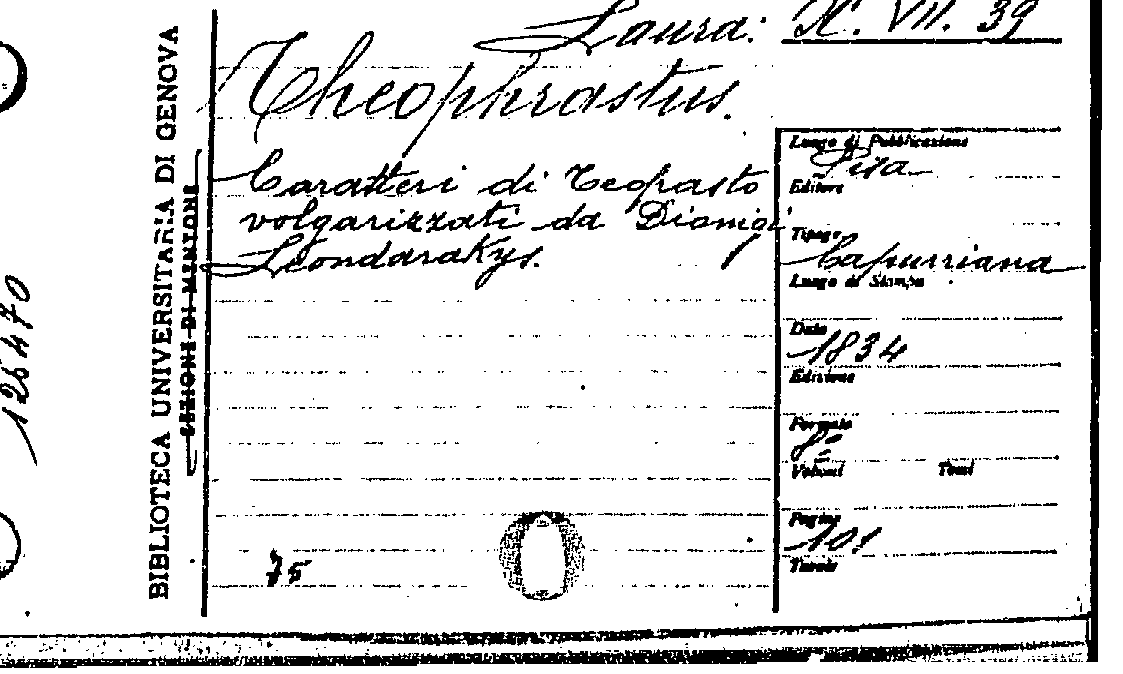 Laura: X. VII. 39
Theophrastus.
Caratteri di Teofrasto
volgarizzati da Dionigi
Leondarakys.
Luogo di Pubblicazione
Pisa
Editore
Tipogr.
Capurriana
Luogo di Stampa
Data
1834
Edizione
Formato
8°
Volumi Tomi
Pagine
101
Tavole
75
BIBLIOTECA UNIVERSITARIA DI GENOVA
SEZIONI DI MINIONE
125470